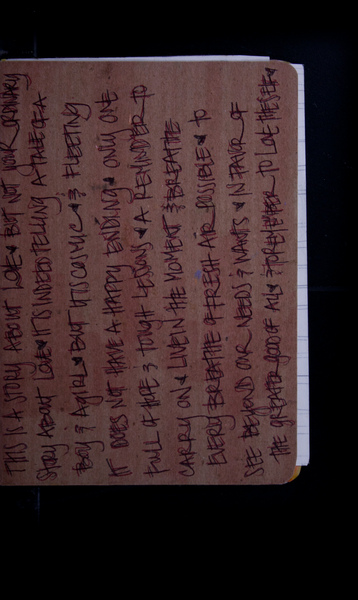 THIS IS A STORY ABOUT LOVE. BUT NOT YOUR ORDINARY
STORY ABOUT LOVE. IT'S INDEED TELLING A TALE OF A
BOY & A GIRL. BUT IT IS COSMIC & FLEETING
IT DOES NOT HAVE A HAPPY ENDING. ONLY ONE
FULL OF HOPE & TOUGH LESSONS. A REMINDER TO
CARRY ON. LIVE IN THE MOMENT & BREATHE
EVERY BREATHE OF FRESH AIR POSSIBLE. TO
SEE BEYOND OUR NEEDS & WANTS. IN FAVOR OF
THE GREATER GOOD OF ALL. & FOREVER TO LOVE